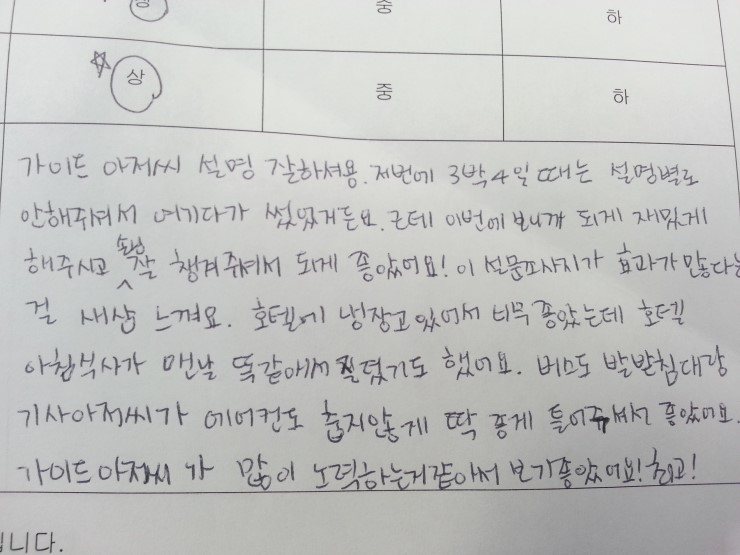 상 중 하
상 중 하
가이드 아저씨 설명 잘하셔용. 저번에 3박4일 때는 설명별로
안해주셔서 여기다가 썼었거든요. 근데 이번에 보니깨 되게 재밌게
해주시고 잘 챙겨주셔서 되게 좋았어요! 이 설문조사지가 효과가 많다는
걸 새삼 느껴요. 호텔에 냉장고있어서 너무 좋았는데 호텔
아침식사가 맨날 똑같애서 찔렸기도 했어요. 버스도 발받침대랑
기사아저씨가 에어컨도 춥지않게 딱 좋게 틀어주셔서 좋았어요.
가이드아저씨가 많이 노력하는거같아서 보기좋았어요! 최고!
니다.